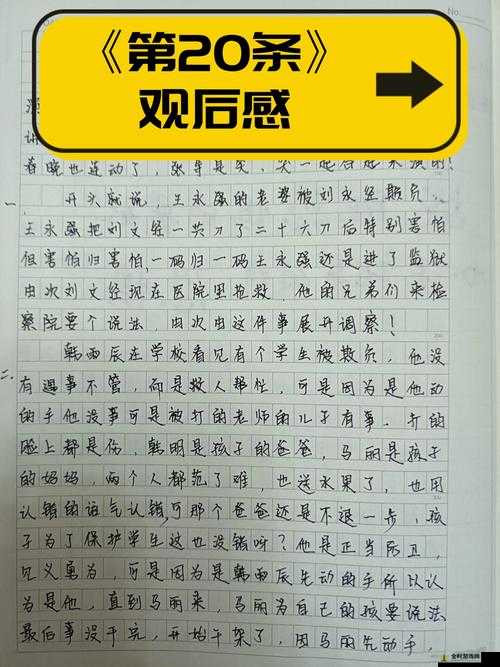 No:
《第20条》
观后感
春晚也连动了，
开头就说，王永强的老婆被刘永经欺负，
一、
王永强把刘文经一共刀了二十六刀后特别害怕
但害怕归害怕，一码归一码王永强还是进了监狱
由次刘文经现在医院里抢救，他的兄弟们来检
察院要个说法，由次由这件事展开调察！
韩雨辰在学校看见有个学生被欺负，他没
二、
有遇事不管，而是救人帮忙，可是因为是他动
的手他没事可是被打的老师的儿子有事，打的
脸上都是伤，韩明是孩子的爸爸，马丽是孩子
的妈妈，两个人都范了难，也送水果了，也用
认错的语气认错，可那个爸爸还是不退一步，孩
子为了保护学生这也没错呀？他是正当防卫，
见义勇为，可是因为是韩雨辰先动的手所以认
为是他，直到马丽来，马丽为自己的孩要说法
最后事没干完，开始干架了，因马丽先动手，
全时游戏网